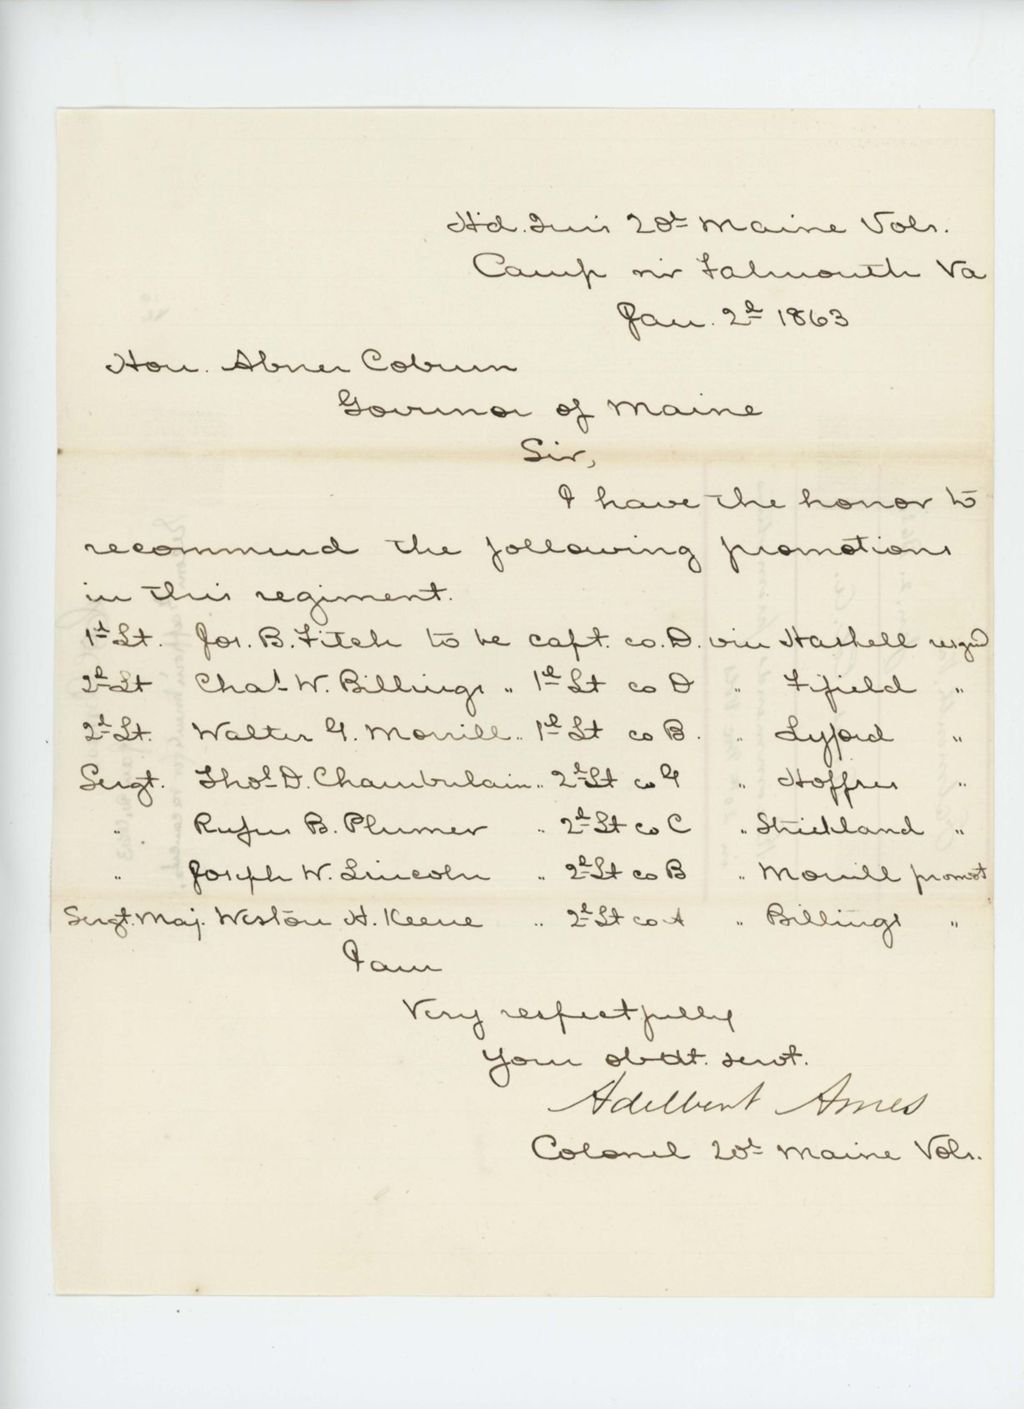 Hd. Qurs 20th Maine Vols.
Camp nr Falmouth Va
Jan. 2d 1863
Hon. Abner Coburn
Governor of Maine
Sir,
I have the honor to
recommend the following promotions
in this regiment.
1st Lt. Jos. B. Fitch to be capt. co. D. vice Haskell resgnd
2d Lt Chas W. Billings " 1st Lt co D " Fifield "
2d Lt. Walter G. Morrill " 1st Lt co B. " Lyford "
Sergt. Thos D. Chamberlain " 2d Lt co G " Hoffses "
" Rufus B. Plumer " 2d Lt co C " Strickland "
" Joseph W. Lincoln " 2d Lt co B " Morrill promot
Sergt. Maj. Weston H. Keene " 2d Lt co A " Billings "
I am
Very respectfully
Your obdt. servt.
Adelbert Ames
Colonel 20th Maine Vols.